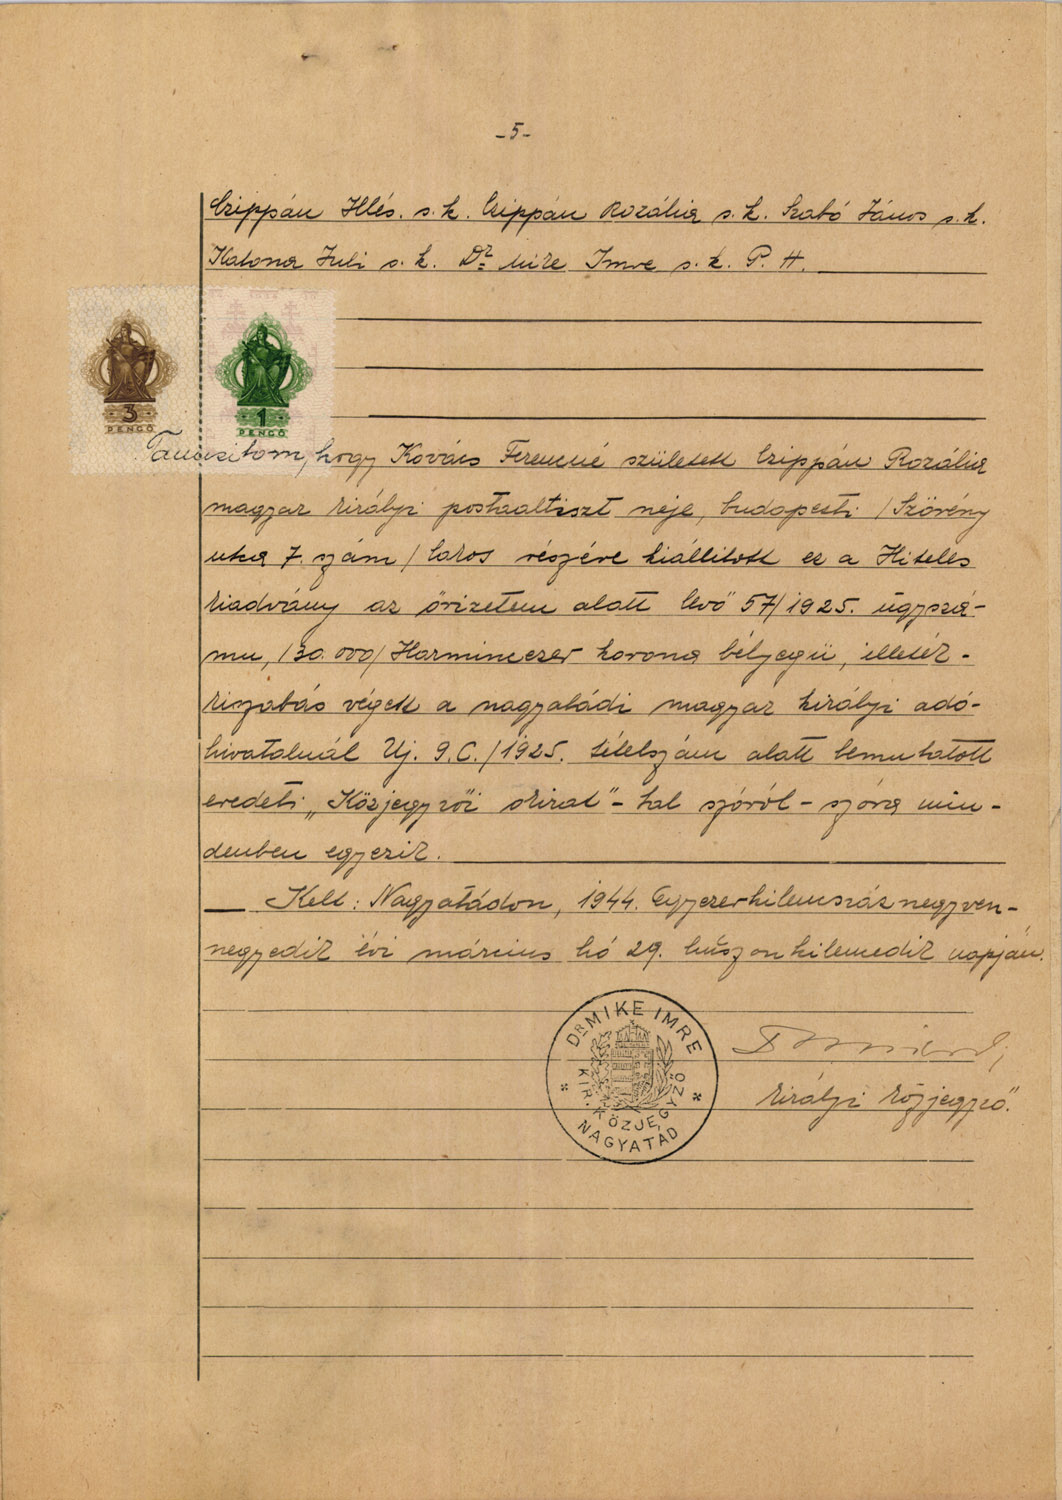 -5-
Czippán Illés. s.k. Czippán Rozália s.k. Szabó János s.k.
Katona Juli s.k. Dr Mike Imre s.k. P. H.
3
PENGŐ
1
PENGŐ
Tanusitom, hogy Kovács Ferencné született Czippán Rozália
magyar királyi postaaltiszt neje, budapesti /Szörény
utca 7. szám/ lakos részére kiállitott ez a Hiteles
kiadvány az őrizetem alatt levő 57/1925. ügyszá-
mu, /30.000/ Harmincezer korona bélyegü, illeték-
kiszabás végett a nagyatádi magyar királyi adó-
hivatalnál Uj. 9.C./1925. tételszám alatt bemutatott
eredeti „Közjegyzői okirat"-tal szóról-szóra min-
denben egyezik.
Kelt: Nagyatádon, 1944. Egyezerkilencszáznegyven-
negyedik évi március hó 29. huszonkilencedik napján.
DR MIKE IMRE
KIR. KÖZJEGYZŐ
NAGYATÁD
királyi közjegyző.